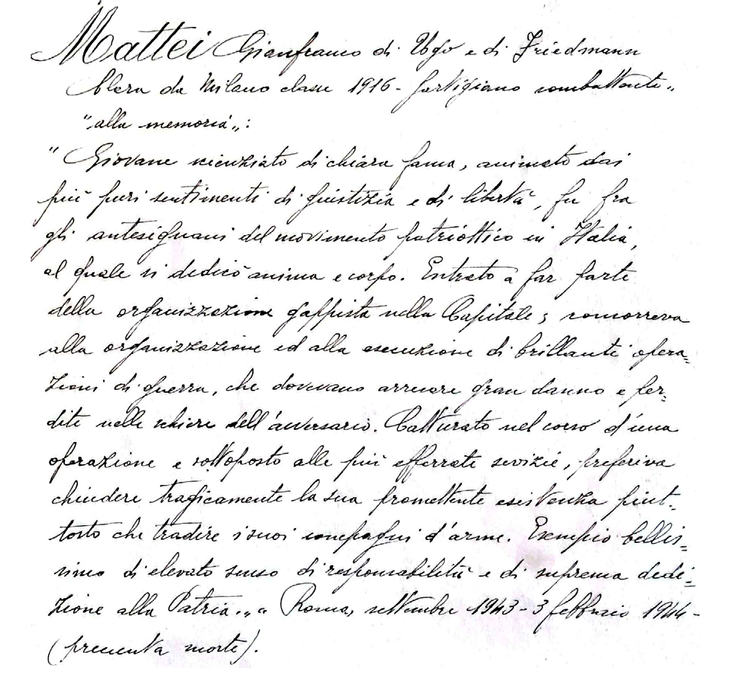 Mattei Gianfranco di Ugo e di Friedmann
Clara da Milano classe 1916 - partigiano combattente „
"alla memoria„:
" Giovane scienziato di chiara fama, animato dai
più puri sentimenti di giustizia e di libertà, fu fra
gli antesignani del movimento patriottico in Italia,
al quale si dedicò anima e corpo. Entrato a far parte
della organizzazione gappista nella Capitale, concorreva
alla organizzazione ed alla esecuzione di brillanti opera=
zioni di guerra, che dovevano arrecare gran danno e per=
dite nelle schiere dell'avversario. Catturato nel corso d'una
operazione e sottoposto alle più efferate sevizie, preferiva
chiudere tragicamente la sua promettente esistenza piut=
tosto che tradire i suoi compagni d'arme. Esempio bellis=
simo di elevato senso di responsabilità e di suprema dedi=
zione alla Patria.„ " Roma, settembre 1943 - 3 febbraio 1944 -
(presunta morte).